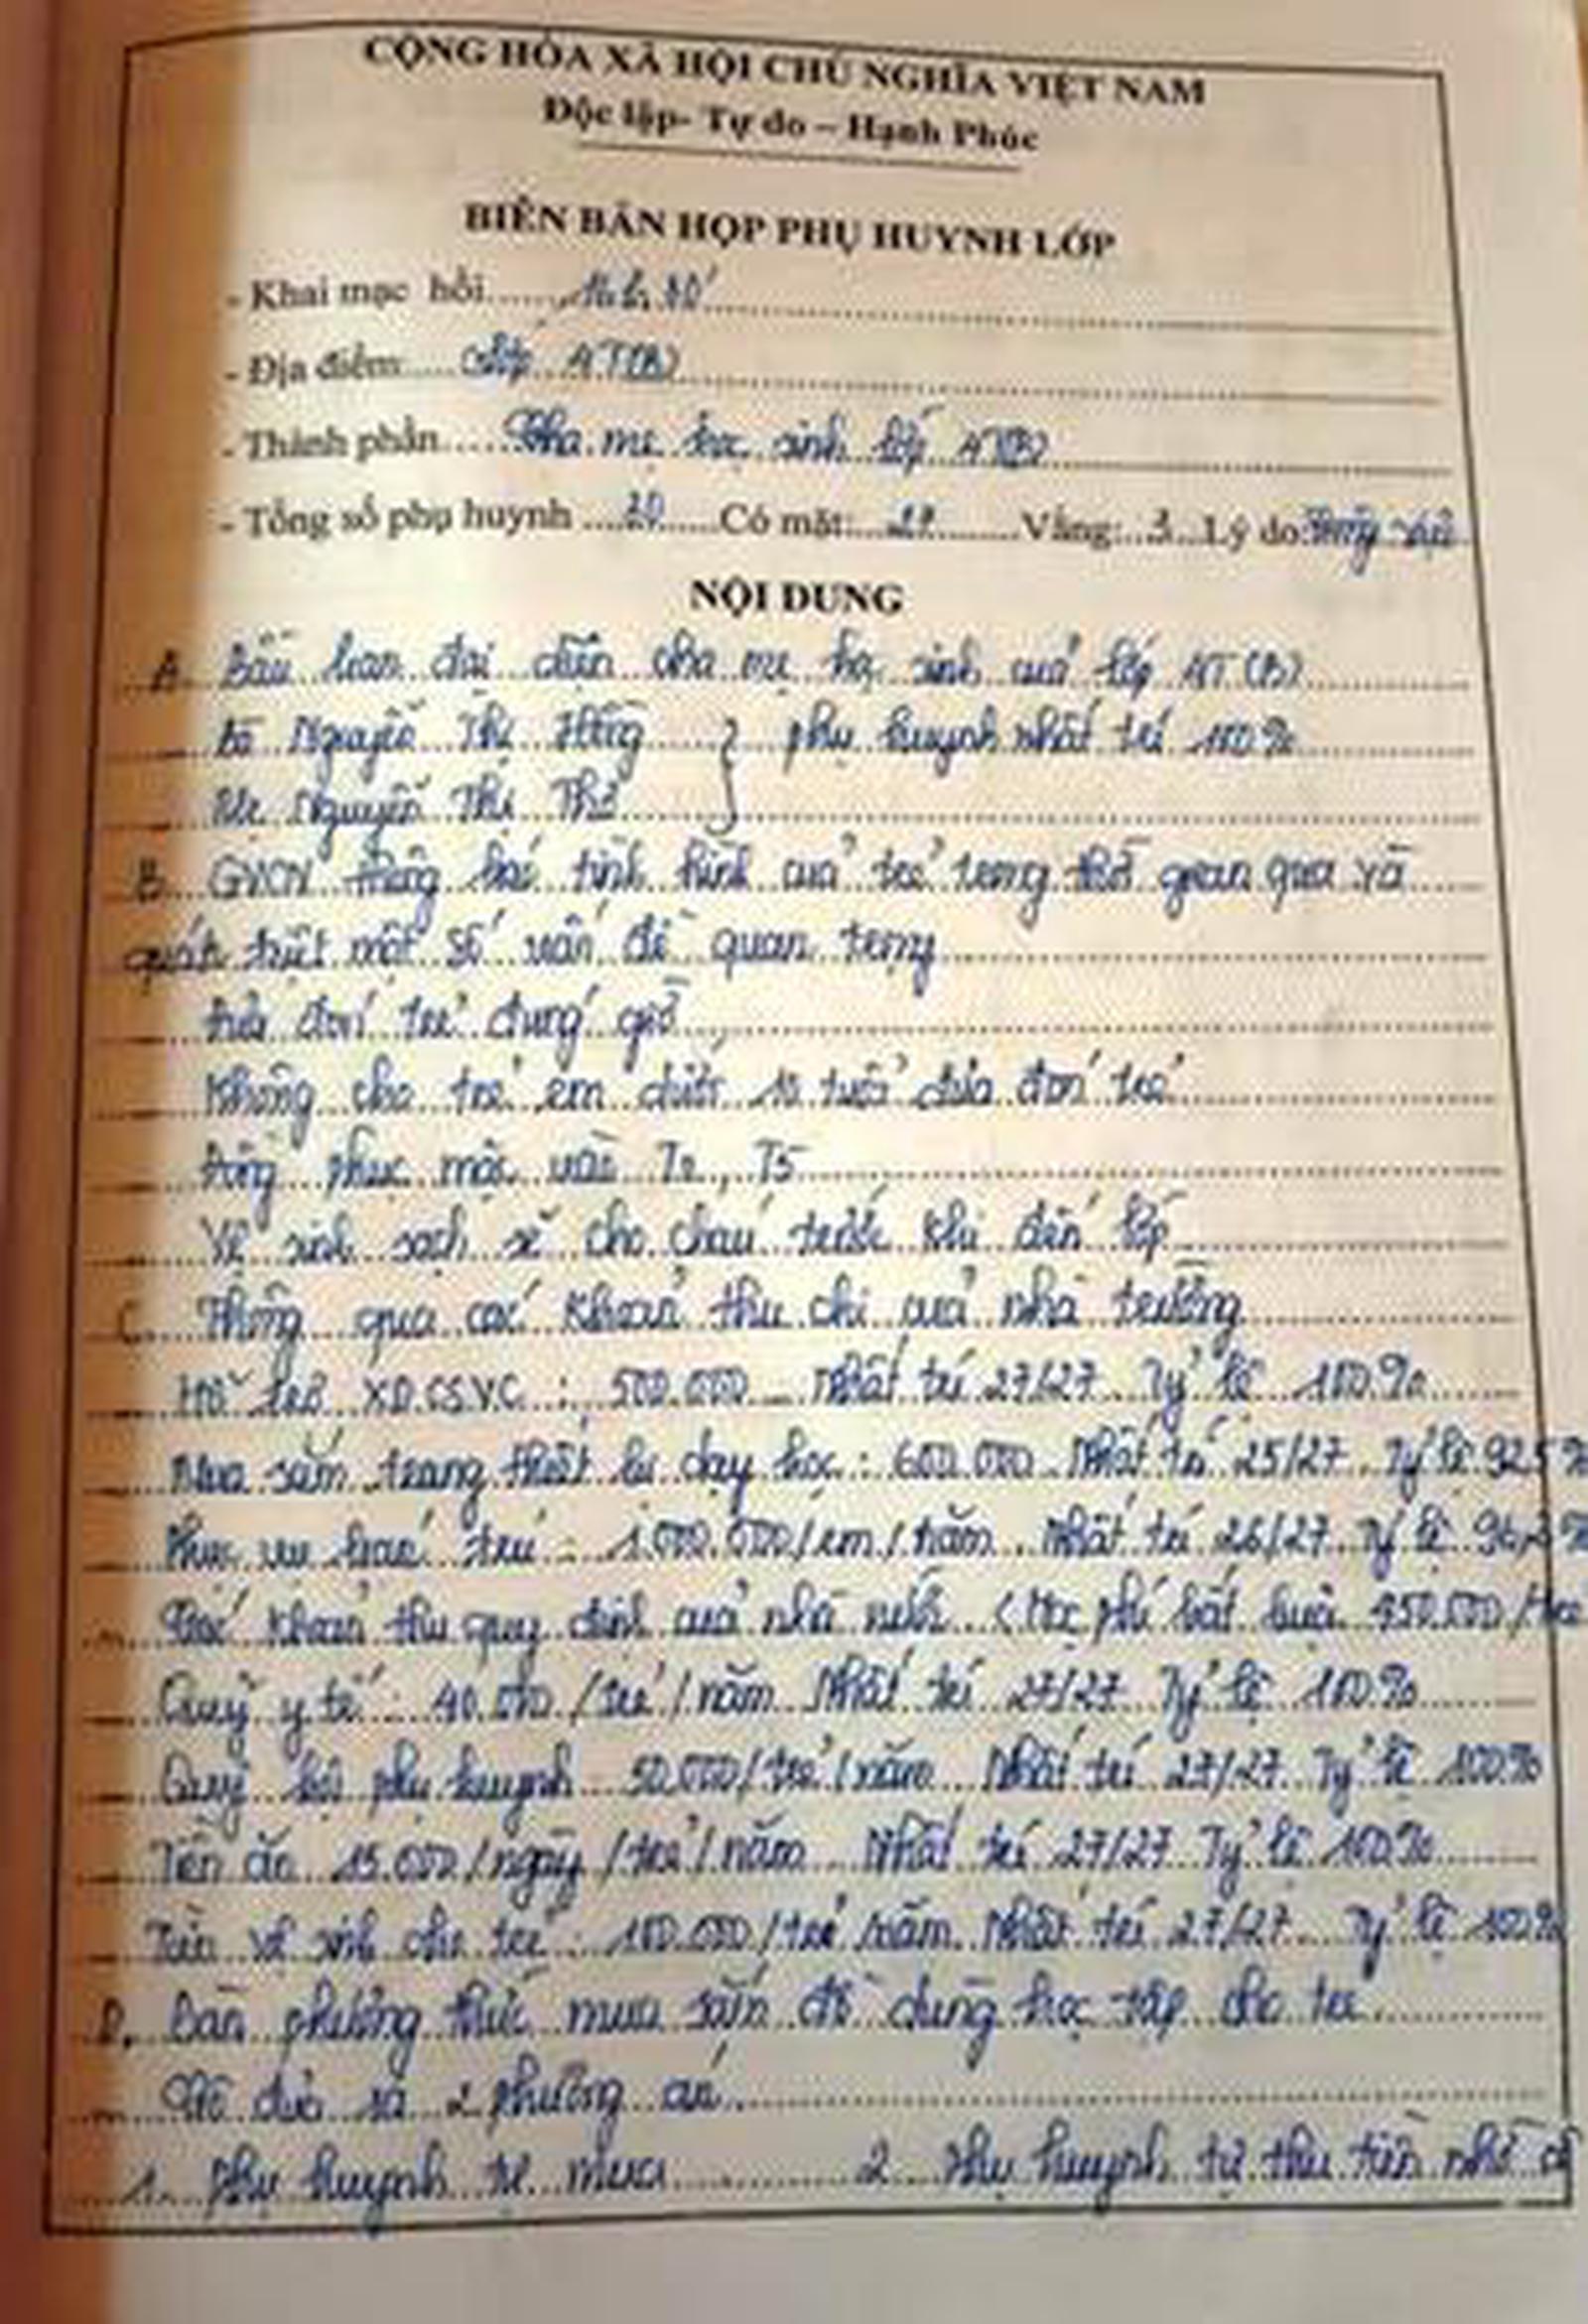 CỘNG HÒA XÃ HỘI CHỦ NGHĨA VIỆT NAM
Độc lập- Tự do – Hạnh Phúc
BIÊN BẢN HỌP PHỤ HUYNH LỚP
- Khai mạc hồi
- Địa điểm: Lớp 4T(B)
- Thành phần Cha mẹ học sinh lớp 4T(B)
- Tổng số phụ huynh 30 Có mặt: 27 Vắng: 3 Lý do:
NỘI DUNG
A. Bầu ban đại diện cha mẹ học sinh của lớp 4T (B)
Nguyễn Thị Hồng } phụ huynh nhất trí 100%
Nguyễn Thị Thơ
B. GVCN thông báo tình hình của trẻ trong thời gian qua và
quán triệt một số vấn đề quan trọng
đưa đón trẻ đúng giờ
Không cho trẻ em dưới 10 tuổi đưa đón trẻ
Đồng phục mặc vào T2, T5
Vệ sinh sạch sẽ cho cháu trước khi đến lớp
C. Thông qua các khoản thu chi của nhà trường
Hỗ trợ XD.CS.V.C : 500.000 Nhất trí 27/27 Tỷ lệ 100%
Mua sắm trang thiết bị dạy học : 600.000 Nhất trí 25/27 Tỷ lệ 92,5%
Phục vụ bán trú : 1.000.000/em/năm Nhất trí 26/27 Tỷ lệ
Các khoản thu quy định của nhà nước (Học phí bắt buộc
Quỹ y tế : 40.000/trẻ/năm Nhất trí 27/27 Tỷ lệ 100%
Quỹ hội phụ huynh 50.000/trẻ/năm Nhất trí 27/27 Tỷ lệ 100%
Tiền ăn 15.000/ngày/trẻ/năm Nhất trí 27/27 Tỷ lệ 100%
Tiền vệ sinh cho trẻ : 100.000/trẻ/năm Nhất trí 27/27 Tỷ lệ 100%
D. Bàn phương thức mua sắm đồ dùng học tập cho trẻ
Cô đưa ra 2 phương án
1. Phụ huynh tự mua 2. Phụ huynh tự thu tiền nhờ